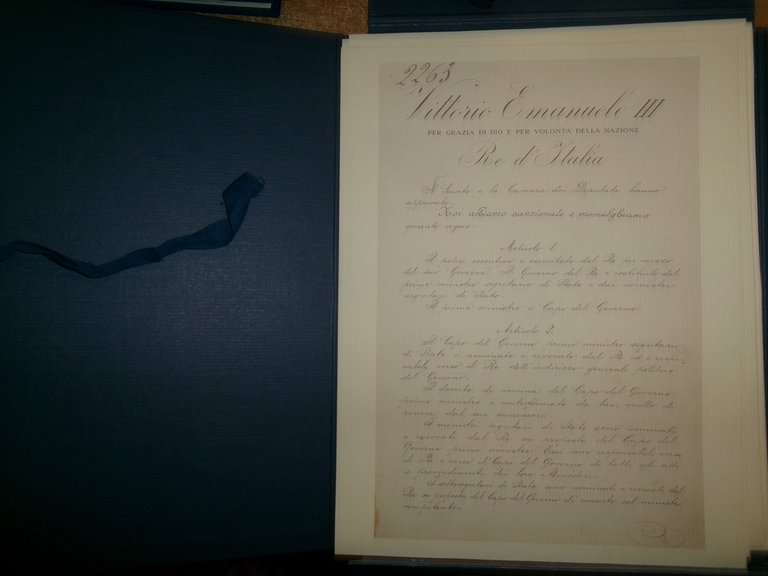 2263
Vittorio Emanuele III
PER GRAZIA DI DIO E PER VOLONTA DELLA NAZIONE
Re d'Italia
Il Senato e la Camera dei Deputati hanno
approvato;
Noi abbiamo sanzionato e promulghiamo
quanto segue:
Articolo 1.
Il potere esecutivo è esercitato dal Re per mezzo
del suo Governo. Il Governo del Re è costituito dal
primo ministro segretario di Stato e dai ministri
segretari di Stato.
Il primo ministro è Capo del Governo.
Articolo 2.
Il Capo del Governo primo ministro segretario
di Stato è nominato e revocato dal Re ed è respon-
sabile verso il Re dell'indirizzo generale politico
del Governo.
Il decreto di nomina del Capo del Governo
primo ministro è controfirmato da lui, quello di
revoca dal suo successore.
I ministri segretari di Stato sono nominati
e revocati dal Re su proposta del Capo del
Governo primo ministro. Essi sono responsabili verso
il Re e verso il Capo del Governo di tutti gli atti
e provvedimenti dei loro Ministeri.
I sottosegretari di Stato sono nominati e revocati dal
Re su proposta del Capo del Governo di concerto col ministro
competente.